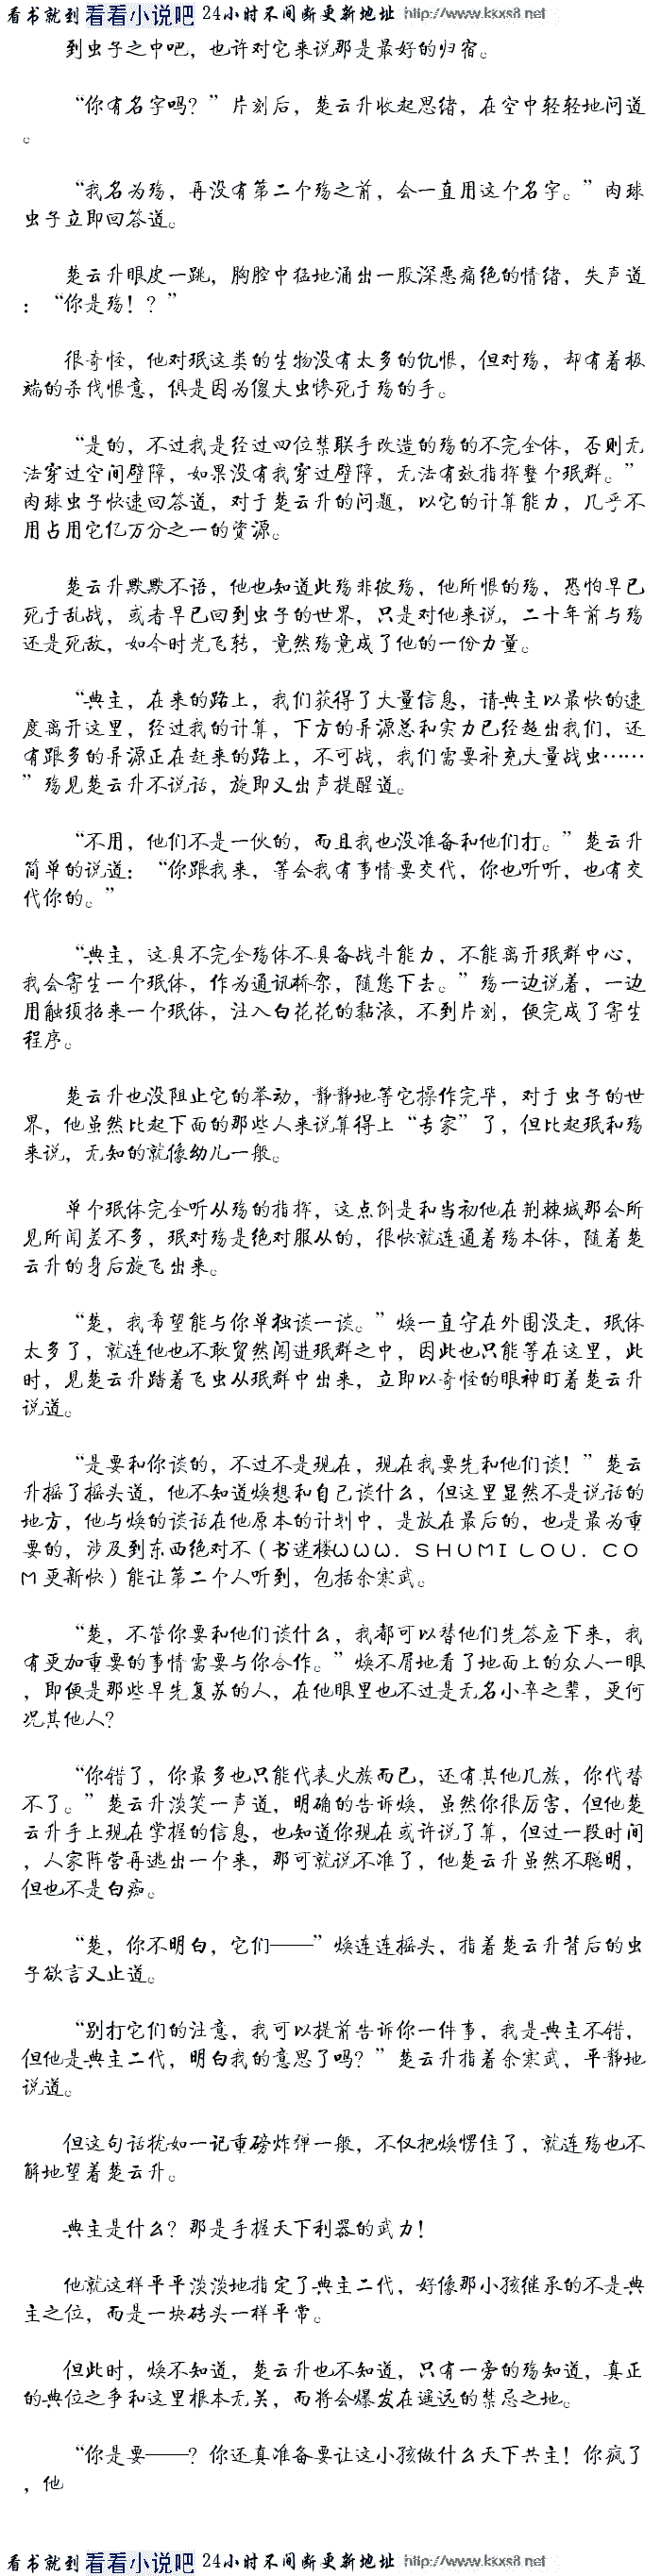 看书就到 看看小说吧 24小时不间断更新地址 http://www.kxs8.net
到虫子之中吧，也许对它来说那是最好的归宿。
“你有名字吗？”片刻后，楚云升收起思绪，在空中轻轻地问道
。
“我名为殇，再没有第二个殇之前，会一直用这个名字。”肉球
虫子立即回答道。
楚云升眼皮一跳，胸腔中猛地涌出一股深恶痛绝的情绪，失声道
：“你是殇！？”
很奇怪，他对珉这类的生物没有太多的仇恨，但对殇，却有着极
端的杀伐恨意，俱是因为傻大虫惨死于殇的手。
“是的，不过我是经过四位禁联手改造的殇的不完全体，否则无
法穿过空间壁障，如果没有我穿过壁障，无法有效指挥整个珉群。”
肉球虫子快速回答道，对于楚云升的问题，以它的计算能力，几乎不
用占用它亿万分之一的资源。
楚云升默默不语，他也知道此殇非彼殇，他所恨的殇，恐怕早已
死于乱战，或者早已回到虫子的世界，只是对他来说，二十年前与殇
还是死敌，如今时光飞转，竟然殇竟成了他的一份力量。
“典主，在来的路上，我们获得了大量信息，请典主以最快的速
度离开这里，经过我的计算，下方的异源总和实力已经超出我们，还
有跟多的异源正在赶来的路上，不可战，我们需要补充大量战虫……
”殇见楚云升不说话，旋即又出声提醒道。
“不用，他们不是一伙的，而且我也没准备和他们打。”楚云升
简单的说道：“你跟我来，等会我有事情要交代，你也听听，也有交
代你的。”
“典主，这具不完全殇体不具备战斗能力，不能离开珉群中心，
我会寄生一个珉体，作为通讯桥架，随您下去。”殇一边说着，一边
用触须招来一个珉体，注入白花花的黏液，不到片刻，便完成了寄生
程序。
楚云升也没阻止它的举动，静静地等它操作完毕，对于虫子的世
界，他虽然比起下面的那些人来说算得上“专家”了，但比起珉和殇
来说，无知的就像幼儿一般。
单个珉体完全听从殇的指挥，这点倒是和当初他在荆棘城那会所
见所闻差不多，珉对殇是绝对服从的，很快就连通着殇本体，随着楚
云升的身后旋飞出来。
“楚，我希望能与你单独谈一谈。”焕一直守在外围没走，珉体
太多了，就连他也不敢贸然闯进珉群之中，因此也只能等在这里，此
时，见楚云升踏着飞虫从珉群中出来，立即以奇怪的眼神盯着楚云升
说道。
“是要和你谈的，不过不是现在，现在我要先和他们谈！”楚云
升摇了摇头道，他不知道焕想和自己谈什么，但这里显然不是说话的
地方，他与焕的谈话在他原本的计划中，是放在最后的，也是最为重
要的，涉及到东西绝对不（书迷楼ＷＷＷ．ＳＨＵＭＩＬＯＵ．ＣＯ
Ｍ更新快）能让第二个人听到，包括余寒武。
“楚，不管你要和他们谈什么，我都可以替他们先答应下来，我
有更加重要的事情需要与你合作。”焕不屑地看了地面上的众人一眼
，即便是那些早先复苏的人，在他眼里也不过是无名小卒之辈，更何
况其他人？
“你错了，你最多也只能代表火族而已，还有其他几族，你代替
不了。”楚云升淡笑一声道，明确的告诉焕，虽然你很厉害，但他楚
云升手上现在掌握的信息，也知道你现在或许说了算，但过一段时间
，人家阵营再逃出一个来，那可就说不准了，他楚云升虽然不聪明，
但也不是白痴。
“楚，你不明白，它们——”焕连连摇头，指着楚云升背后的虫
子欲言又止道。
“别打它们的注意，我可以提前告诉你一件事，我是典主不错，
但他是典主二代，明白我的意思了吗？”楚云升指着余寒武，平静地
说道。
但这句话犹如一记重磅炸弹一般，不仅把焕愣住了，就连殇也不
解地望着楚云升。
典主是什么？那是手握天下利器的武力！
他就这样平平淡淡地指定了典主二代，好像那小孩继承的不是典
主之位，而是一块砖头一样平常。
但此时，焕不知道，楚云升也不知道，只有一旁的殇知道，真正
的典位之争和这里根本无关，而将会爆发在遥远的禁忌之地。
“你是要——？你还真准备要让这小孩做什么天下共主！你疯了
，他
看书就到 看看小说吧 24小时不间断更新地址 http://www.kxs8.net